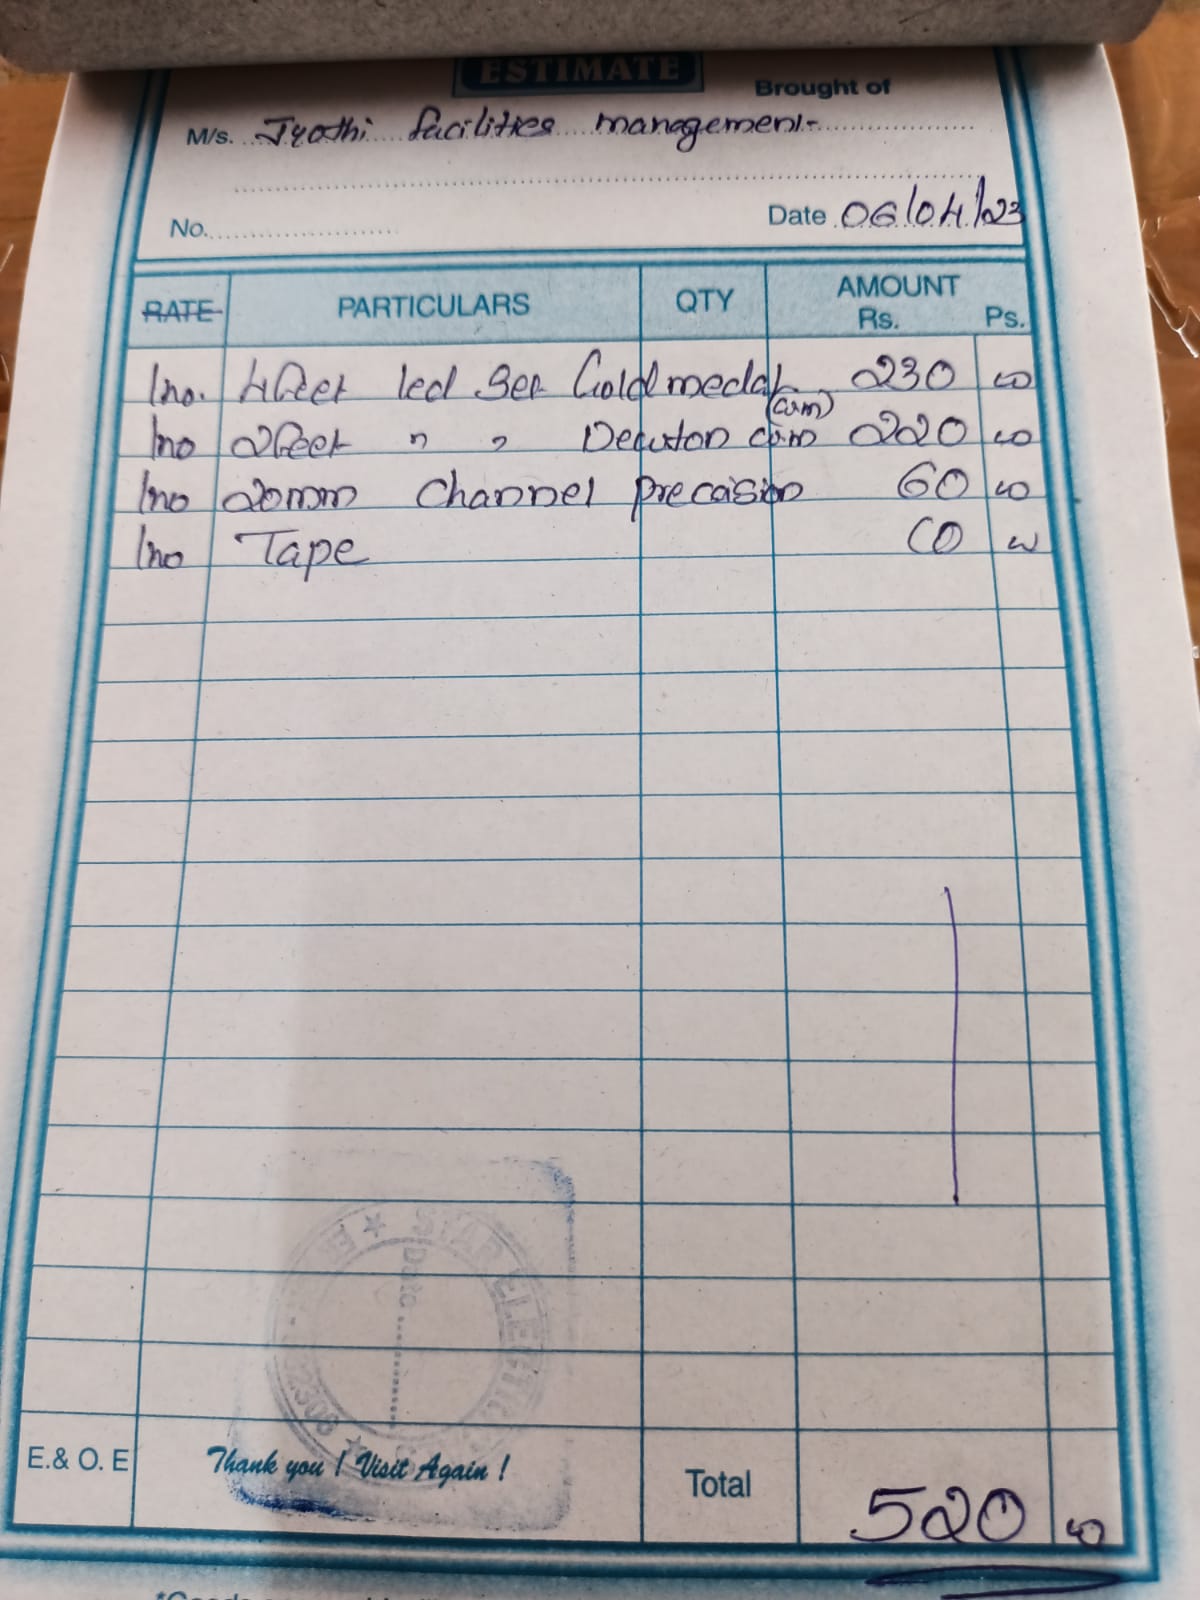 ESTIMATE
Brought of
M/s. Jyothi facilities management
No. Date 06/04/23
RATE PARTICULARS QTY AMOUNT
Rs. Ps.
1no. 4feet led set Goldmedal 230 00
(warm)
1no 2feet " " 220 00
1no 20mm Channel precision 60 00
1no Tape 10 00
STAR ELECTR
Date
E.& O. E Thank you ! Visit Again ! Total 520 00